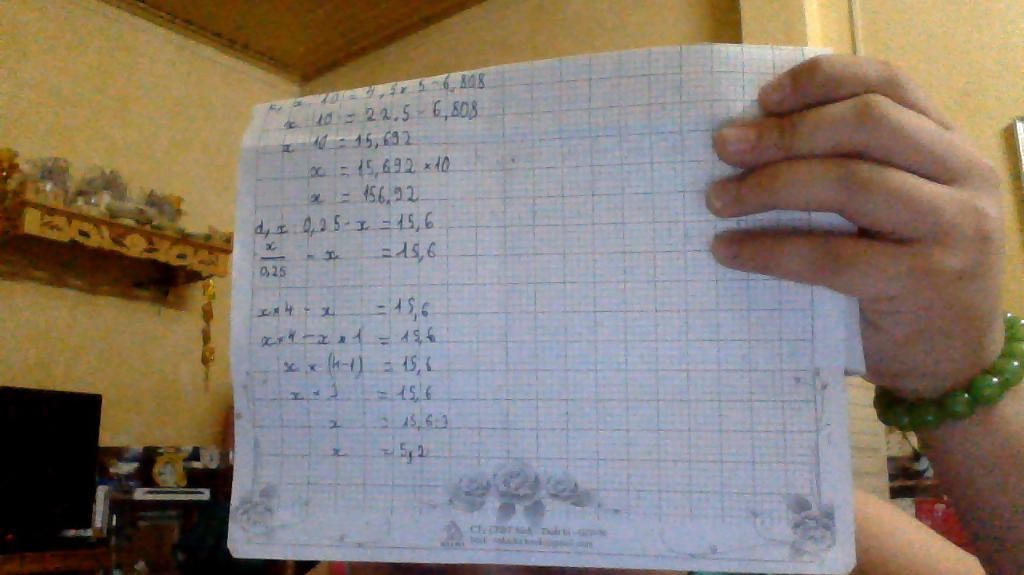 x : 10 = 4,5 x 5 - 6,808
x : 10 = 22,5 - 6,808
x : 10 = 15,692
x = 15,692 x 10
x = 156,92
d, x : 0,25 - x = 15,6
x/0,25 - x = 15,6
x x 4 - x = 15,6
x x 4 - x x 1 = 15,6
x x (4-1) = 15,6
x x 3 = 15,6
x = 15,6:3
x = 5,2